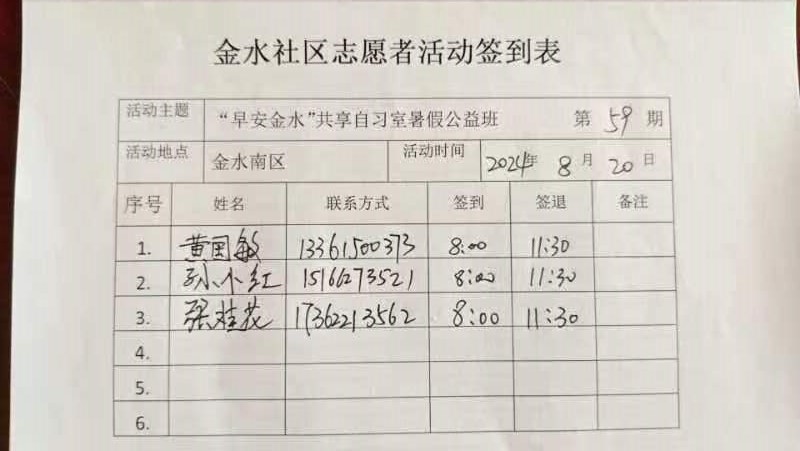 金水社区志愿者活动签到表
活动主题 “早安金水”共享自习室暑假公益班 第 59 期
活动地点 金水南区 活动时间 2024年 8 月 20 日
序号 姓名 联系方式 签到 签退 备注
1. 黄国敏 13361500373 8:00 11:30
2. 孙小红 15166273521 8:00 11:30
3. 张桂花 17362213562 8:00 11:30
4.
5.
6.